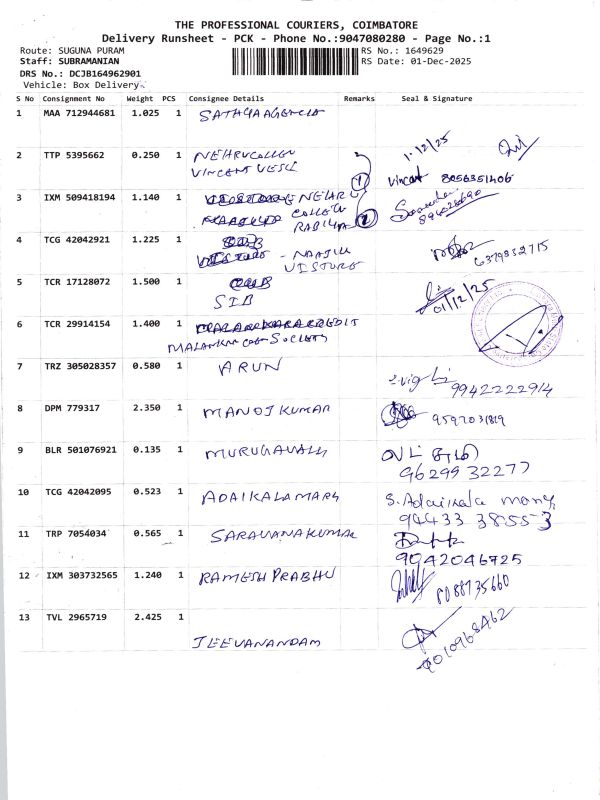 THE PROFESSIONAL COURIERS, COIMBATORE
Delivery Runsheet - PCK - Phone No.:9047080280 - Page No.:1
Route: SUGUNA PURAM
RS No.: 1649629
Staff: SUBRAMANIAN
RS Date: 01-Dec-2025
DRS No.: DCJB164962901
Vehicle: Box Delivery
S No Consignment No Weight PCS Consignee Details Remarks Seal & Signature
1 MAA 712944681 1.025 1 SATHYA AGENCIES
2 TTP 5395662 0.250 1 NEHRU COLLEGE 1-12/25
VINCENT Vincent 8056351406
3 IXM 509418194 1.140 1 NEHRU 1
COLLEGE 2
RABIYA
4 TCG 42042921 1.225 1 SIB
- NAAJIL 6379352715
VISTORE
5 TCR 17128072 1.500 1 01/12/25
SIB
6 TCR 29914154 1.400 1 CREDIT
MALANKARA SOCIETY
7 TRZ 305028357 0.580 1 ARUN
9942222914
8 DPM 779317 2.350 1 MANOJ KUMAR 9597031819
9 BLR 501076921 0.135 1 MURUGAVALLY
9629932277
10 TCG 42042095 0.523 1 ADAIKALAMARY S. Adaikala mary
94433 38553
11 TRP 7054034 0.565 1 SARAVANAKUMAR
9042046725
12 IXM 303732565 1.240 1 RAMESH PRABHU
8088735660
13 TVL 2965719 2.425 1
JEEVANANDAM